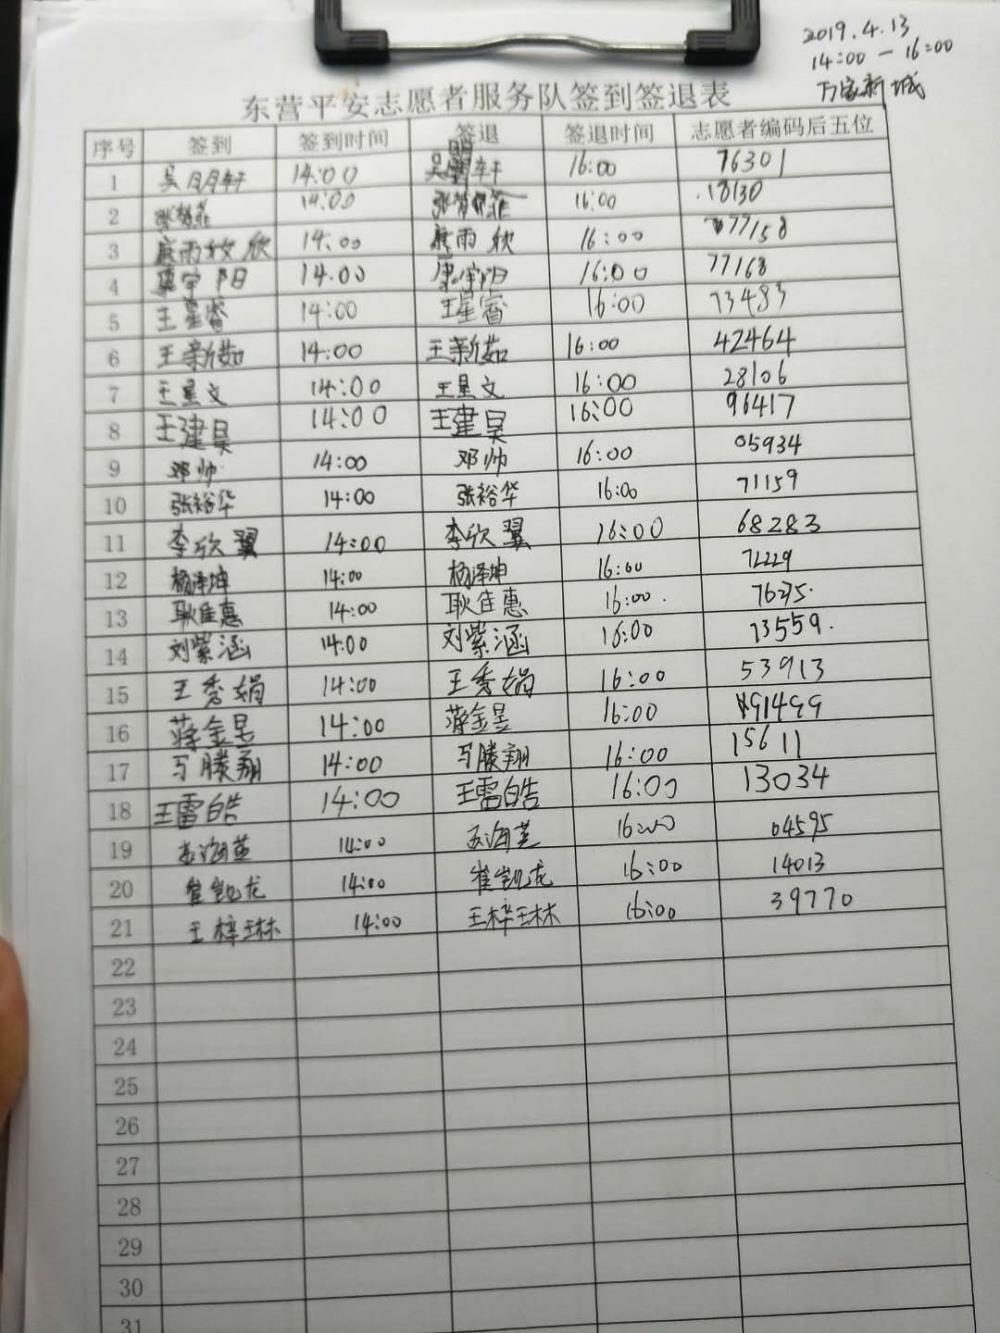 2019.4.13
14:00 — 16:00
万家新城
东营平安志愿者服务队签到签退表
序号 签到 签到时间 签退 签退时间 志愿者编码后五位
1 吴明轩 14:00 吴明轩 16:00 76301
2 14:00 16:00 18130
3 14:00 16:00 77158
4 14:00 16:00 77168
5 王星睿 14:00 王星睿 16:00 73483
6 王新茹 14:00 王新茹 16:00 42464
7 王星文 14:00 王星文 16:00 28106
8 王建昊 14:00 王建昊 16:00 96417
9 邓帅 14:00 邓帅 16:00 05934
10 张裕华 14:00 张裕华 16:00 71159
11 李欣翼 14:00 李欣翼 16:00 68283
12 杨泽坤 14:00 杨泽坤 16:00 72229
13 耿佳惠 14:00 耿佳惠 16:00
14 刘紫涵 14:00 刘紫涵 16:00 73559
15 王秀娟 14:00 王秀娟 16:00 53913
16 蒋金昱 14:00 蒋金昱 16:00 91499
17 马滕翔 14:00 马滕翔 16:00 15611
18 王雷皓 14:00 王雷皓 16:00 13034
19 14:00 16:00 04595
20 崔凯龙 14:00 崔凯龙 16:00 14013
21 王梓琳 14:00 王梓琳 16:00 39770
22
23
24
25
26
27
28
29
30
31